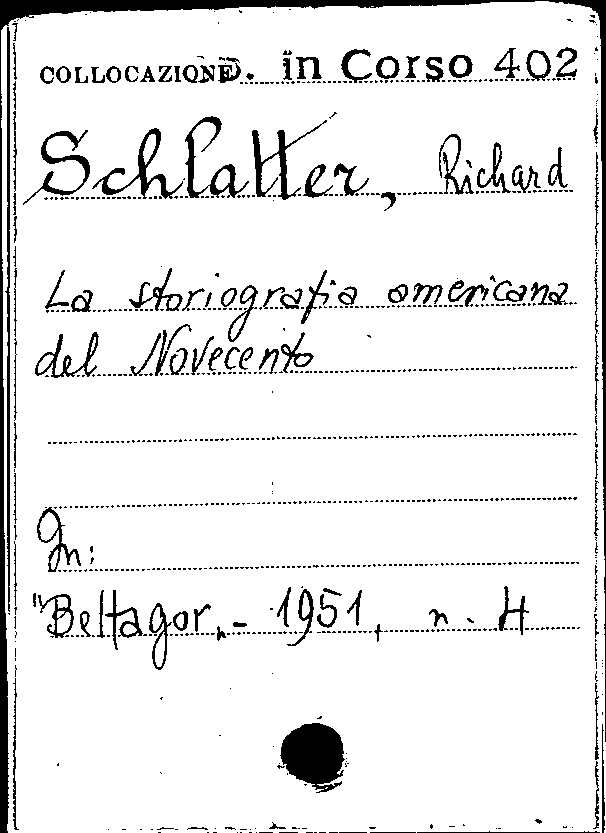 COLLOCAZIONE. in Corso 402
Schlatter, Richard
La storiografia americana
del Novecento
In:
"Belfagor„ - 1951, n. 4